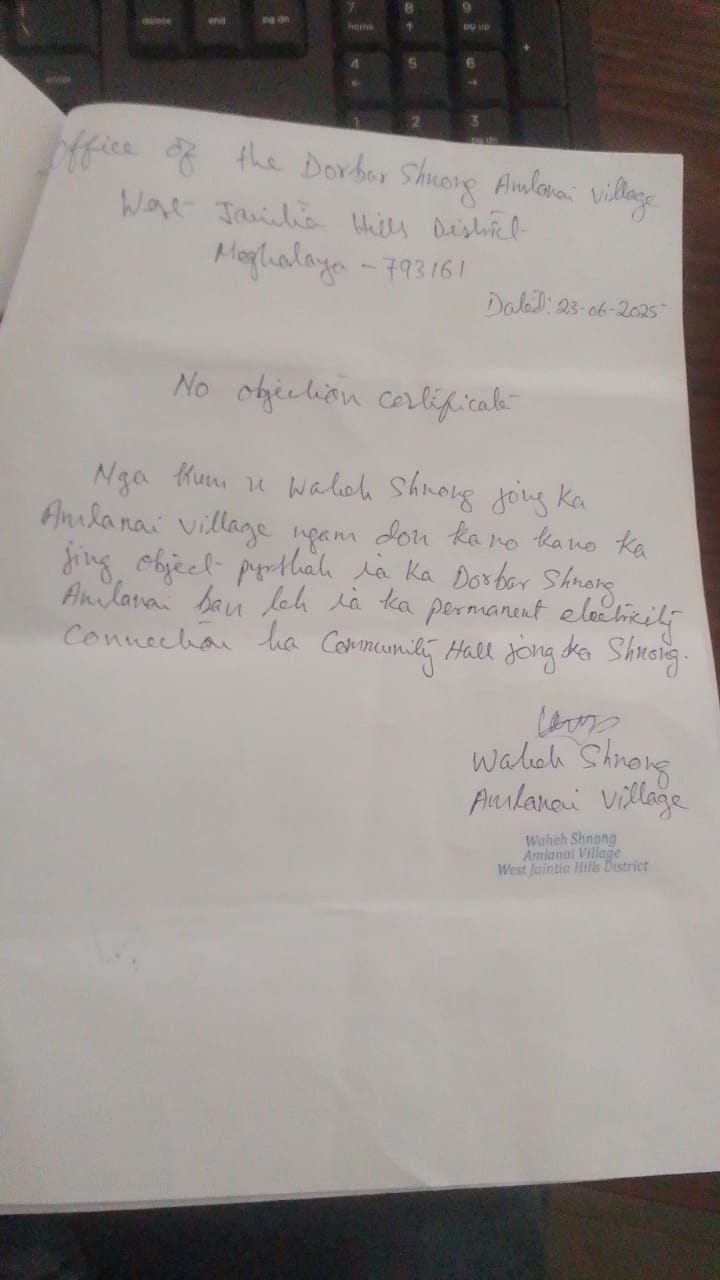 delete end pg dn 7 home 8 ↑ 9 pg up
enter 4 ← 5 6 → +
1 2 3 pg dn
office of the Dorbar Shnong Amlanai Village
West Jaintia Hills District
Meghalaya - 793161
Dated: 23-06-2025
No objection certificate
Nga kum u Waheh Shnong jong ka
Amlanai Village ngam don kano kano ka
jing object pyrshah ia ka Dorbar Shnong
Amlanai ban leh ia ka permanent electricity
Connection ha Community Hall jong ka Shnong.
Waheh Shnong
Amlanai Village
Waheh Shnong
Amlanai Village
West Jaintia Hills District